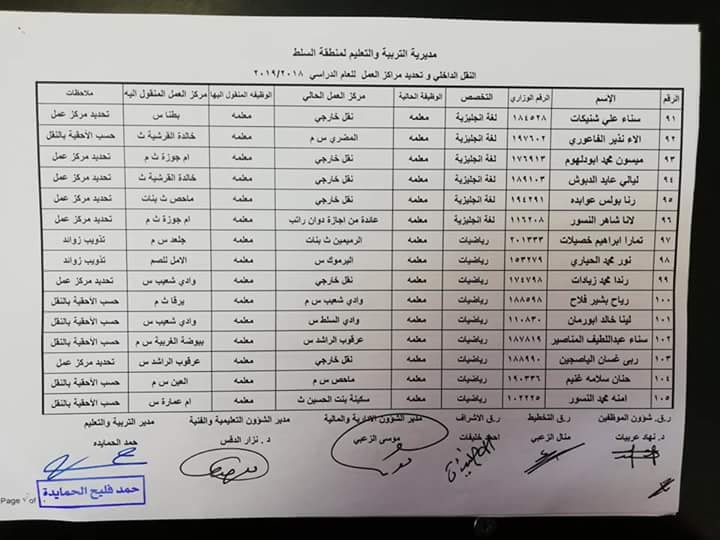 مديرية التربية والتعليم لمنطقة السلط
النقل الداخلي و تحديد مراكز العمل للعام الدراسي ٢٠١٩/٢٠١٨
الرقم الإسم الرقم الوزاري التخصص الوظيفة الحالية مركز العمل الحالي الوظيفه المنقول اليها مركز العمل المنقول اليه ملاحظات
٩١ سناء علي شنيكات ١٨٤٥٢٨ لغة انجليزية معلمه نقل خارجي معلمه بطنا س تحديد مركز عمل
٩٢ الاء نذير الفاعوري ١٩٧٦٠٢ لغة انجليزية معلمه المضري س م معلمه خالدة القرشية ث حسب الأحقية بالنقل
٩٣ ميسون محمد ابودلهوم ١٧٦٩١٣ لغة انجليزية معلمه نقل خارجي معلمه ام جوزة ث م تحديد مركز عمل
٩٤ ليالي عايد الدبوش ١٨٩١٠٣ لغة انجليزية معلمه نقل خارجي معلمه خالدة القرشية ث تحديد مركز عمل
٩٥ رنا بولس عوابده ١٩٤٢٩١ لغة انجليزية معلمه نقل خارجي معلمه ماحص ث بنات تحديد مركز عمل
٩٦ لانا شاهر النسور ١١٦٢٠٨ لغة انجليزية معلمه عائدة من اجازة دوان راتب معلمه ام جوزة ث م تحديد مركز عمل
٩٧ تمارا ابراهيم خصيلات ٢٠١٣٣٣ رياضيات معلمه الرميمين ث بنات معلمه جلعد س م تذويب زوائد
٩٨ نور محمد الحياري ١٥٣٢٧٩ رياضيات معلمه اليرموك س معلمه الامل للصم تذويب زوائد
٩٩ رندا محمد زيادات ١٧٤٧٩٨ رياضيات معلمه نقل خارجي معلمه وادي شعيب س تحديد مركز عمل
١٠٠ رياح بشير فلاح ١٨٨٥٩٨ رياضيات معلمه وادي شعيب س م معلمه يرقا ث م حسب الأحقية بالنقل
١٠١ لينا خالد ابورمان ١١٠٨٣٠ رياضيات معلمه وادي السلط س معلمه وادي شعيب س حسب الأحقية بالنقل
١٠٢ سناء عبداللطيف المناصير ١٨٧٨١٩ رياضيات معلمه عرقوب الراشد س معلمه بيوضة الغربية س م حسب الأحقية بالنقل
١٠٣ ربى غسان الياصجين ١٨٨٩٩٠ رياضيات معلمه نقل خارجي معلمه عرقوب الراشد س تحديد مركز عمل
١٠٤ حنان سلامه غنيم ١٩٠٣٣٦ رياضيات معلمه ماحص س م معلمه العين س م حسب الأحقية بالنقل
١٠٥ امنه محمد النسور ١٠٢٢٢٥ رياضيات معلمه سكينة بنت الحسين ث معلمه ام عمارة س حسب الأحقية بالنقل
ر.ق. شؤون الموظفين ر.ق التخطيط ر.ق الاشراف مدير الشؤون الادارية والمالية مدير الشؤون التعليمية والفنية مدير التربية والتعليم
د. نهاد عربيات منال الزعبي احمد خليفات موسى الزعبي د. نزار الدقس حمد الحمايده
حمد فليح الحمايدة
Page of